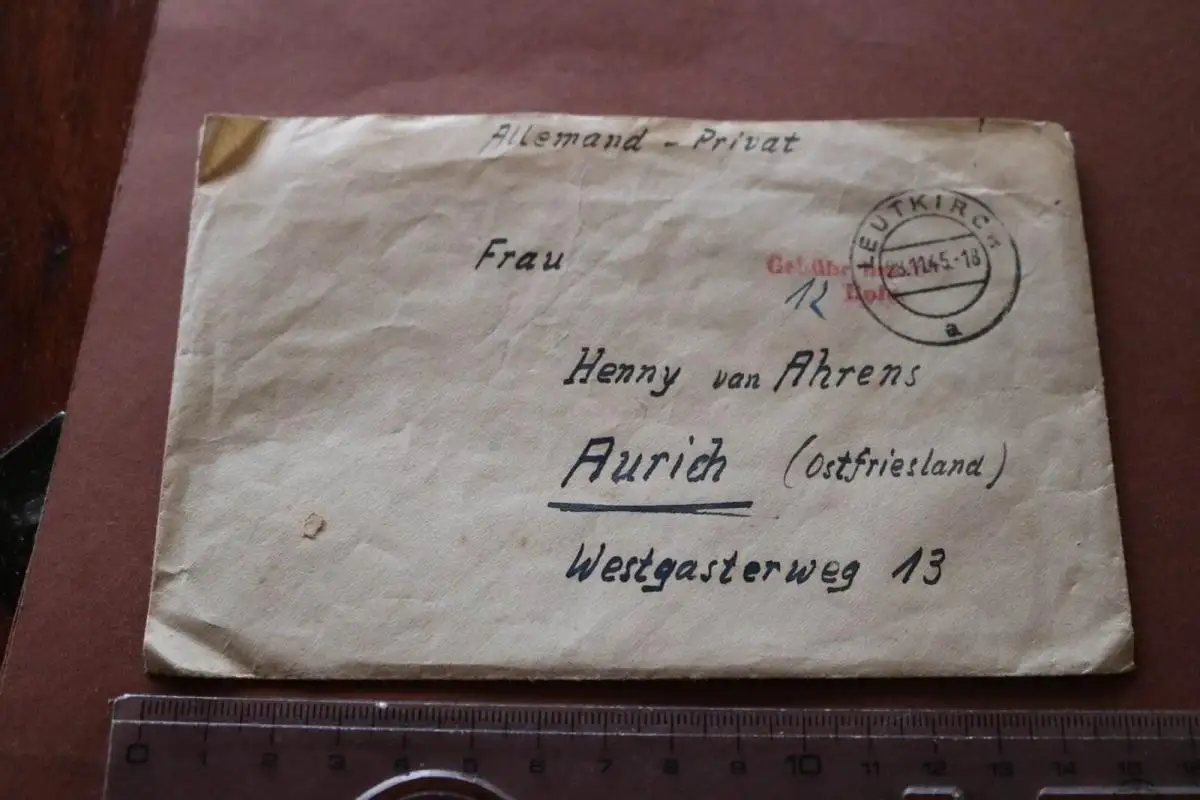 Allemand - Privat
LEUTKIRCH
Frau
28.11.45.-18
12
a
Henny van Ahrens
Aurich (Ostfriesland)
Westgasterweg 13
0 1 2 3 4 5 6 7 8 9 10 11 12 13 14 15 16